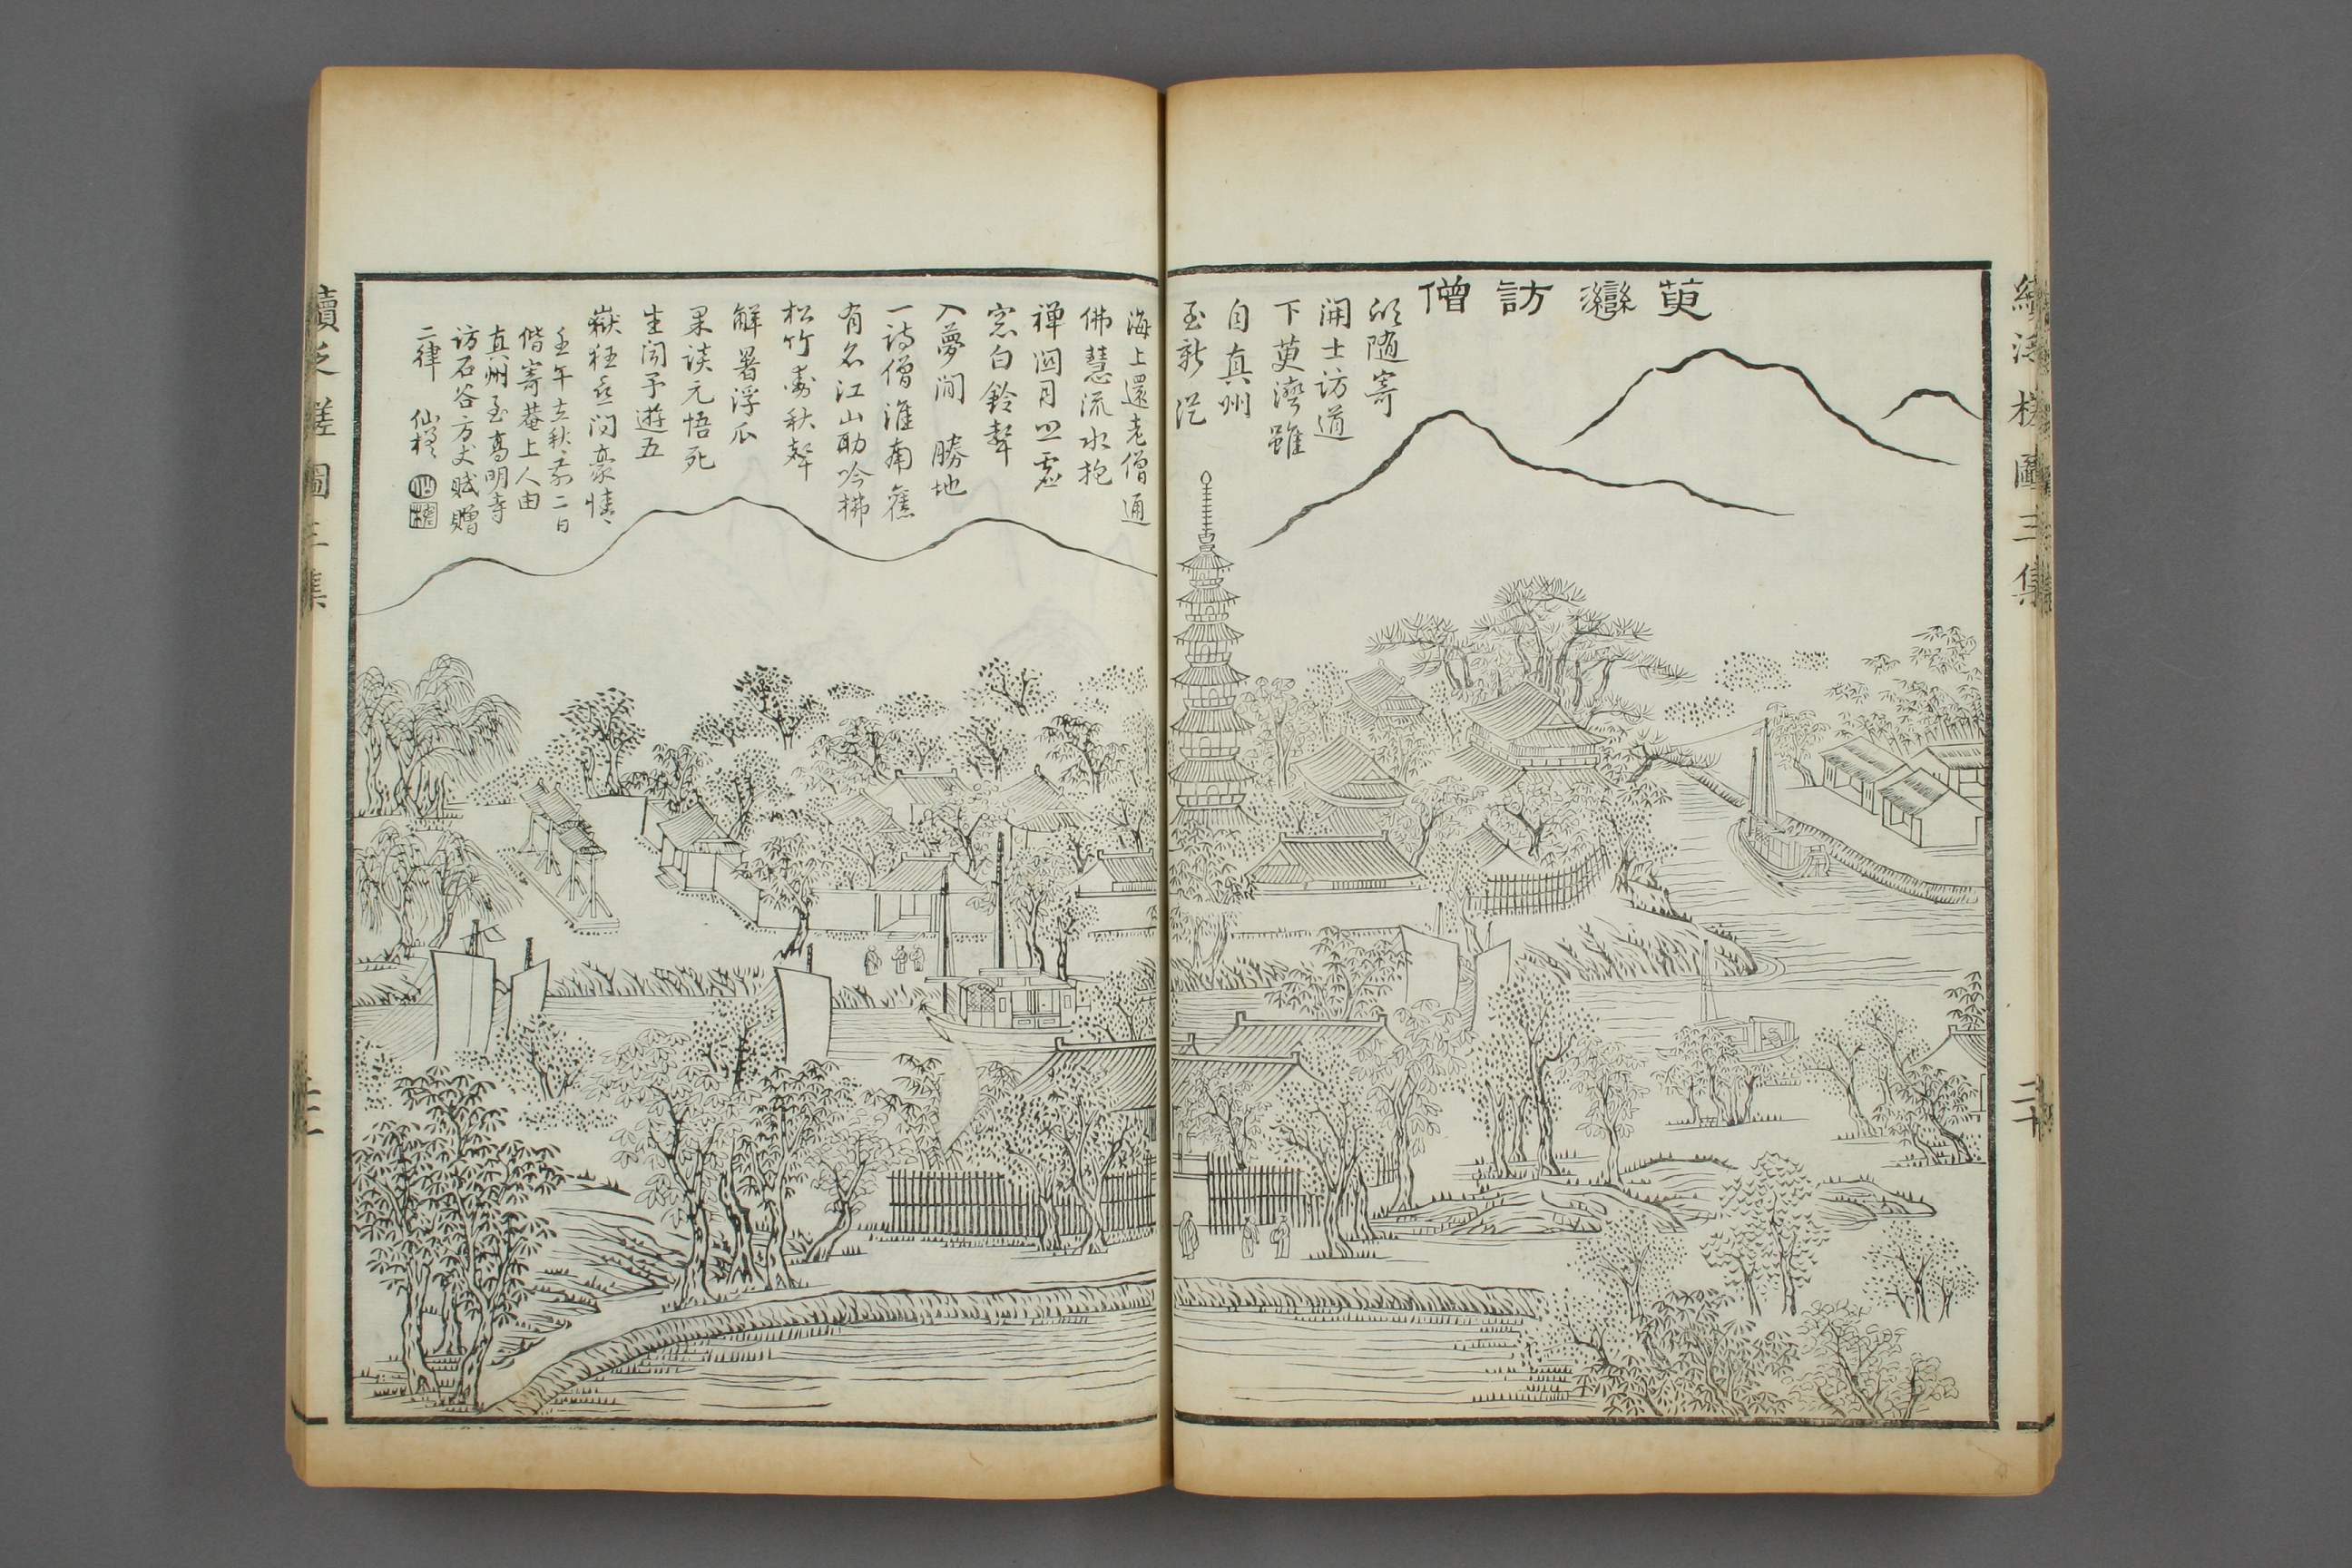 續泛槎圖三集
二十
萸灣訪僧
欣隨寄
開士訪道
下萸灣雖
自真州
至新從
海上還老僧通
佛慧流水抱
禪関月照虛
窓白鈴聲
入夢間 勝地
一詩僧淮南舊
有名江山助吟拂
松竹
秋聲
解暑浮瓜
果談元悟死
生聞予遊五
嶽狂喜問豪情
壬午立秋前二日
偕寄菴上人由
真州至高明寺
訪石谷方丈賦贈
二律 仙槎
續泛槎圖三集